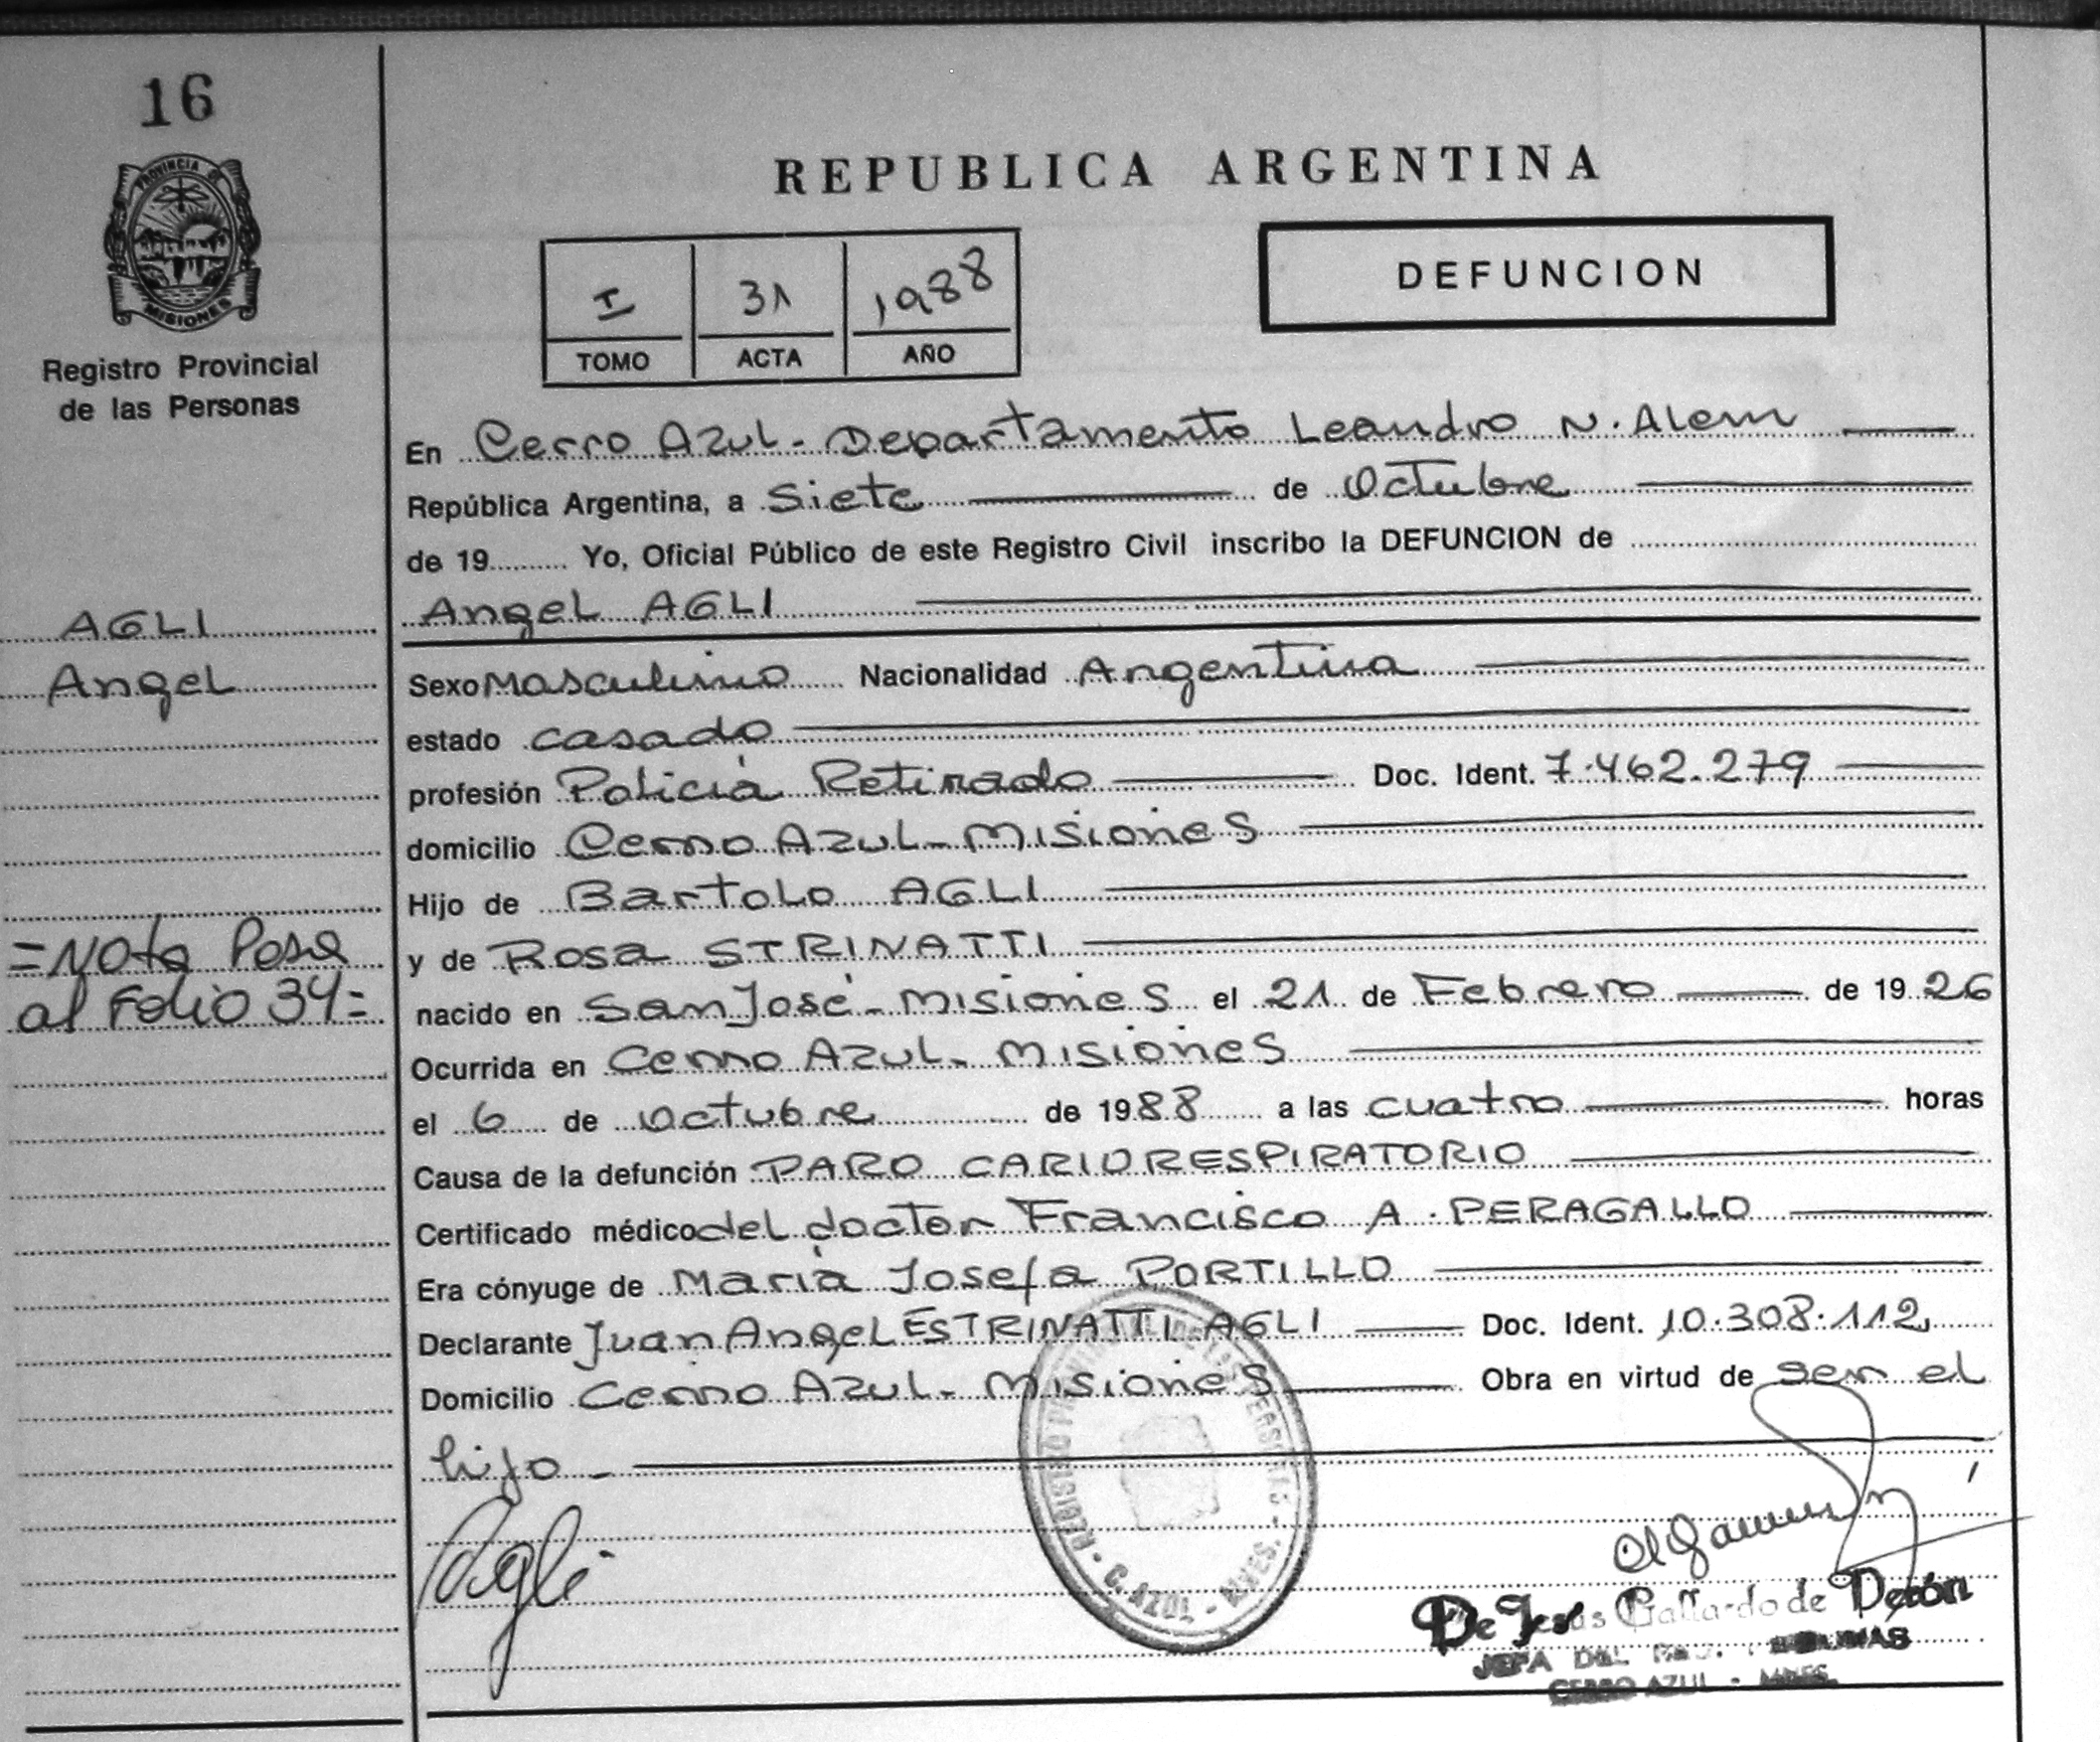 16
PROVINCIA DE
MISIONES
Registro Provincial
de las Personas
AGLI
Angel
=Nota Pasa
al Folio 34=
REPUBLICA ARGENTINA
I 31 1988
TOMO ACTA AÑO
DEFUNCION
En Cerro Azul - Departamento Leandro N. Alem
República Argentina, a Siete de Octubre
de 19 Yo, Oficial Público de este Registro Civil inscribo la DEFUNCION de
Angel AGLI
Sexo Masculino Nacionalidad Argentina
estado casado
profesión Policía Retirado Doc. Ident. 7.462.279
domicilio Cerro Azul - Misiones
Hijo de Bartolo AGLI
y de Rosa STRINATTI
nacido en San José - Misiones el 21 de Febrero de 19 26
Ocurrida en Cerro Azul - Misiones
el 6 de octubre de 1988 a las cuatro horas
Causa de la defunción PARO CARIORESPIRATORIO
Certificado médico del doctor Francisco A. PERAGALLO
Era cónyuge de María Josefa PORTILLO
Declarante Juan Angel ESTRINATTI AGLI Doc. Ident. 10.308.112
Domicilio Cerro Azul - Misiones Obra en virtud de ser el
hijo -
Agli
REGISTRO DE LAS PERSONAS - C. AZUL - MNES.
De Jesús Gallardo de Detón
JEFA DEL
CERRO AZUL - MNES.